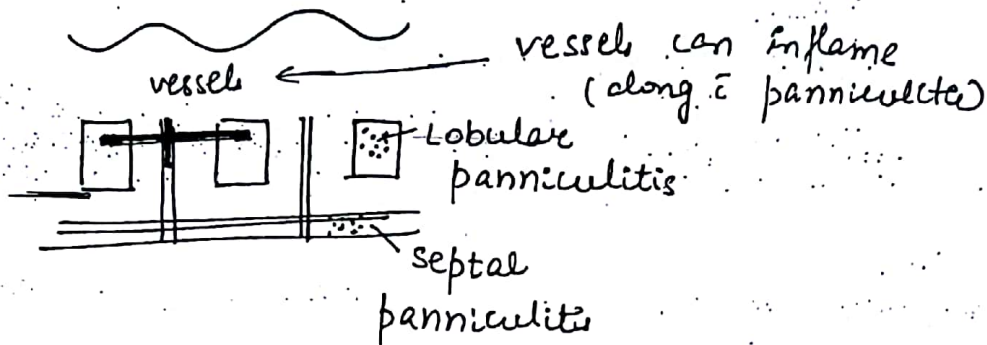 vessels can inflame
(along c̄ panniculitis)
vessels
Lobular
panniculitis
septal
panniculitis